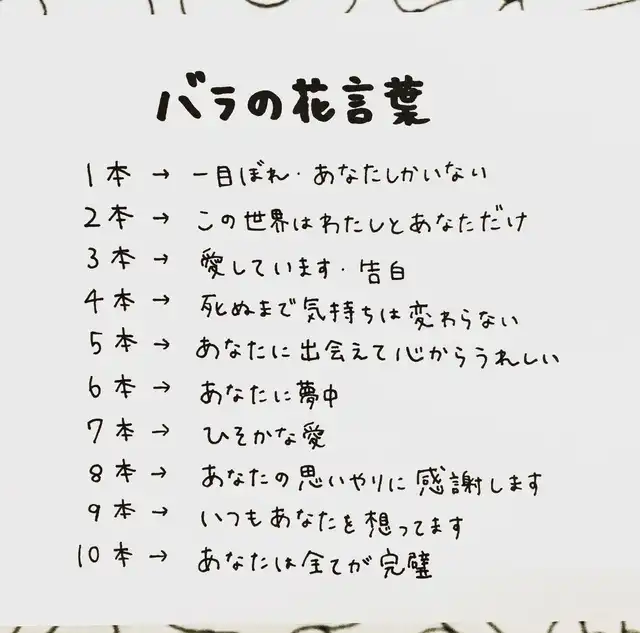 バラの花言葉
1本 → 一目ぼれ・あなたしかいない
2本 → この世界はわたしとあなただけ
3本 → 愛しています・告白
4本 → 死ぬまで気持ちは変わらない
5本 → あなたに出会えて心からうれしい
6本 → あなたに夢中
7本 → ひそかな愛
8本 → あなたの思いやりに感謝します
9本 → いつもあなたを想ってます
10本 → あなたは全てが完璧